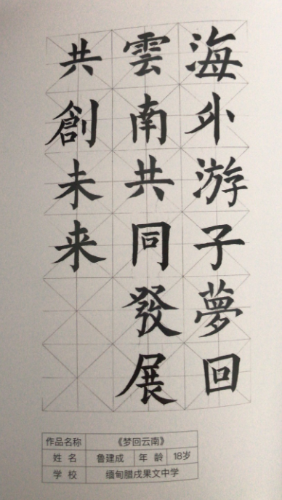 海外游子夢回
雲南共同發展
共創未来
作品名称 《梦回云南》
姓名 鲁建成 年龄 18岁
学校 缅甸腊戌果文中学